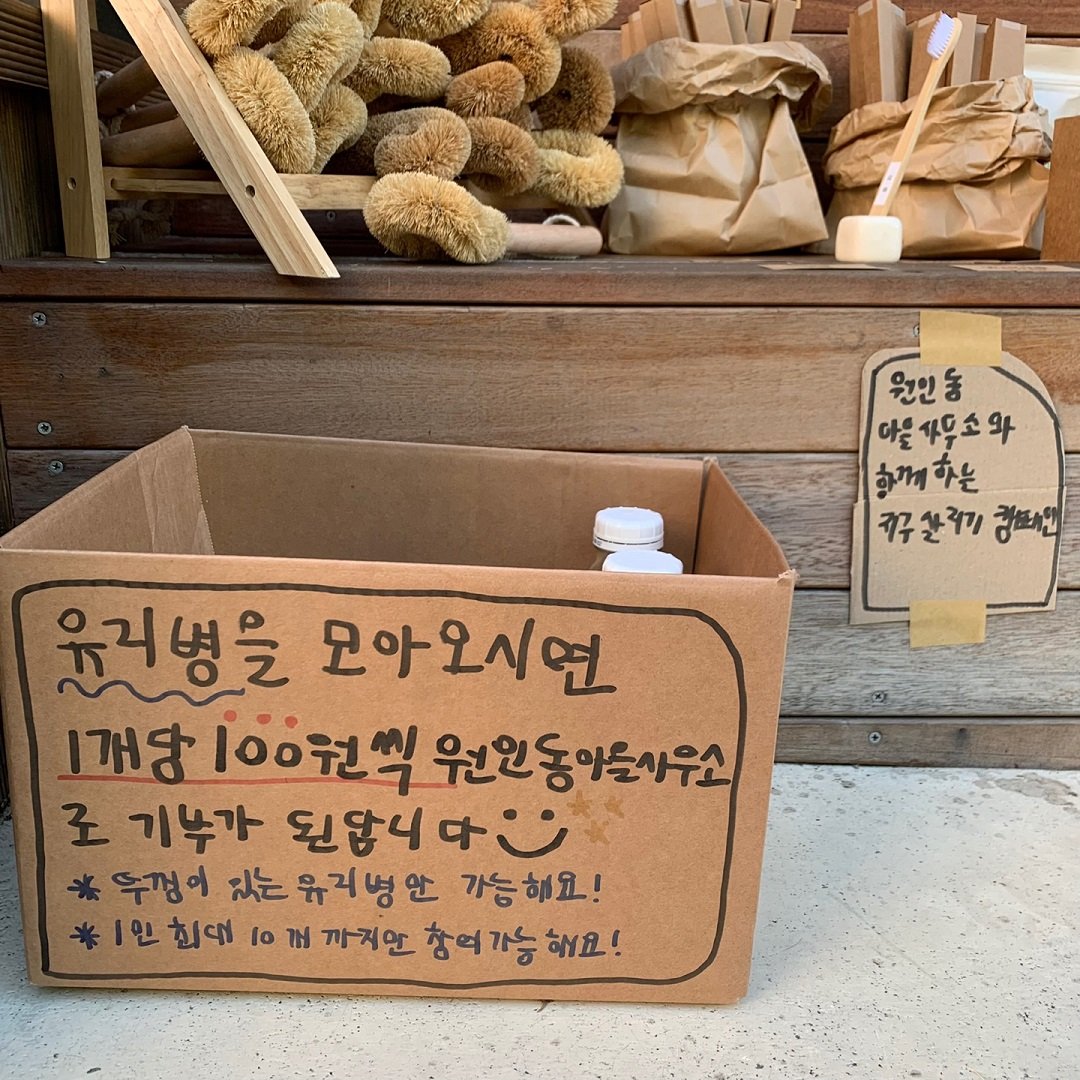 유리병을 모아오시면
1개당 100원씩 원인동마을사무소
로 기부가 된답니다
* 뚜껑이 있는 유리병만 가능해요!
* 1인 최대 10개 까지만 참여가능해요!
원인동
마을사무소와
함께하는
지구살리기 캠페인